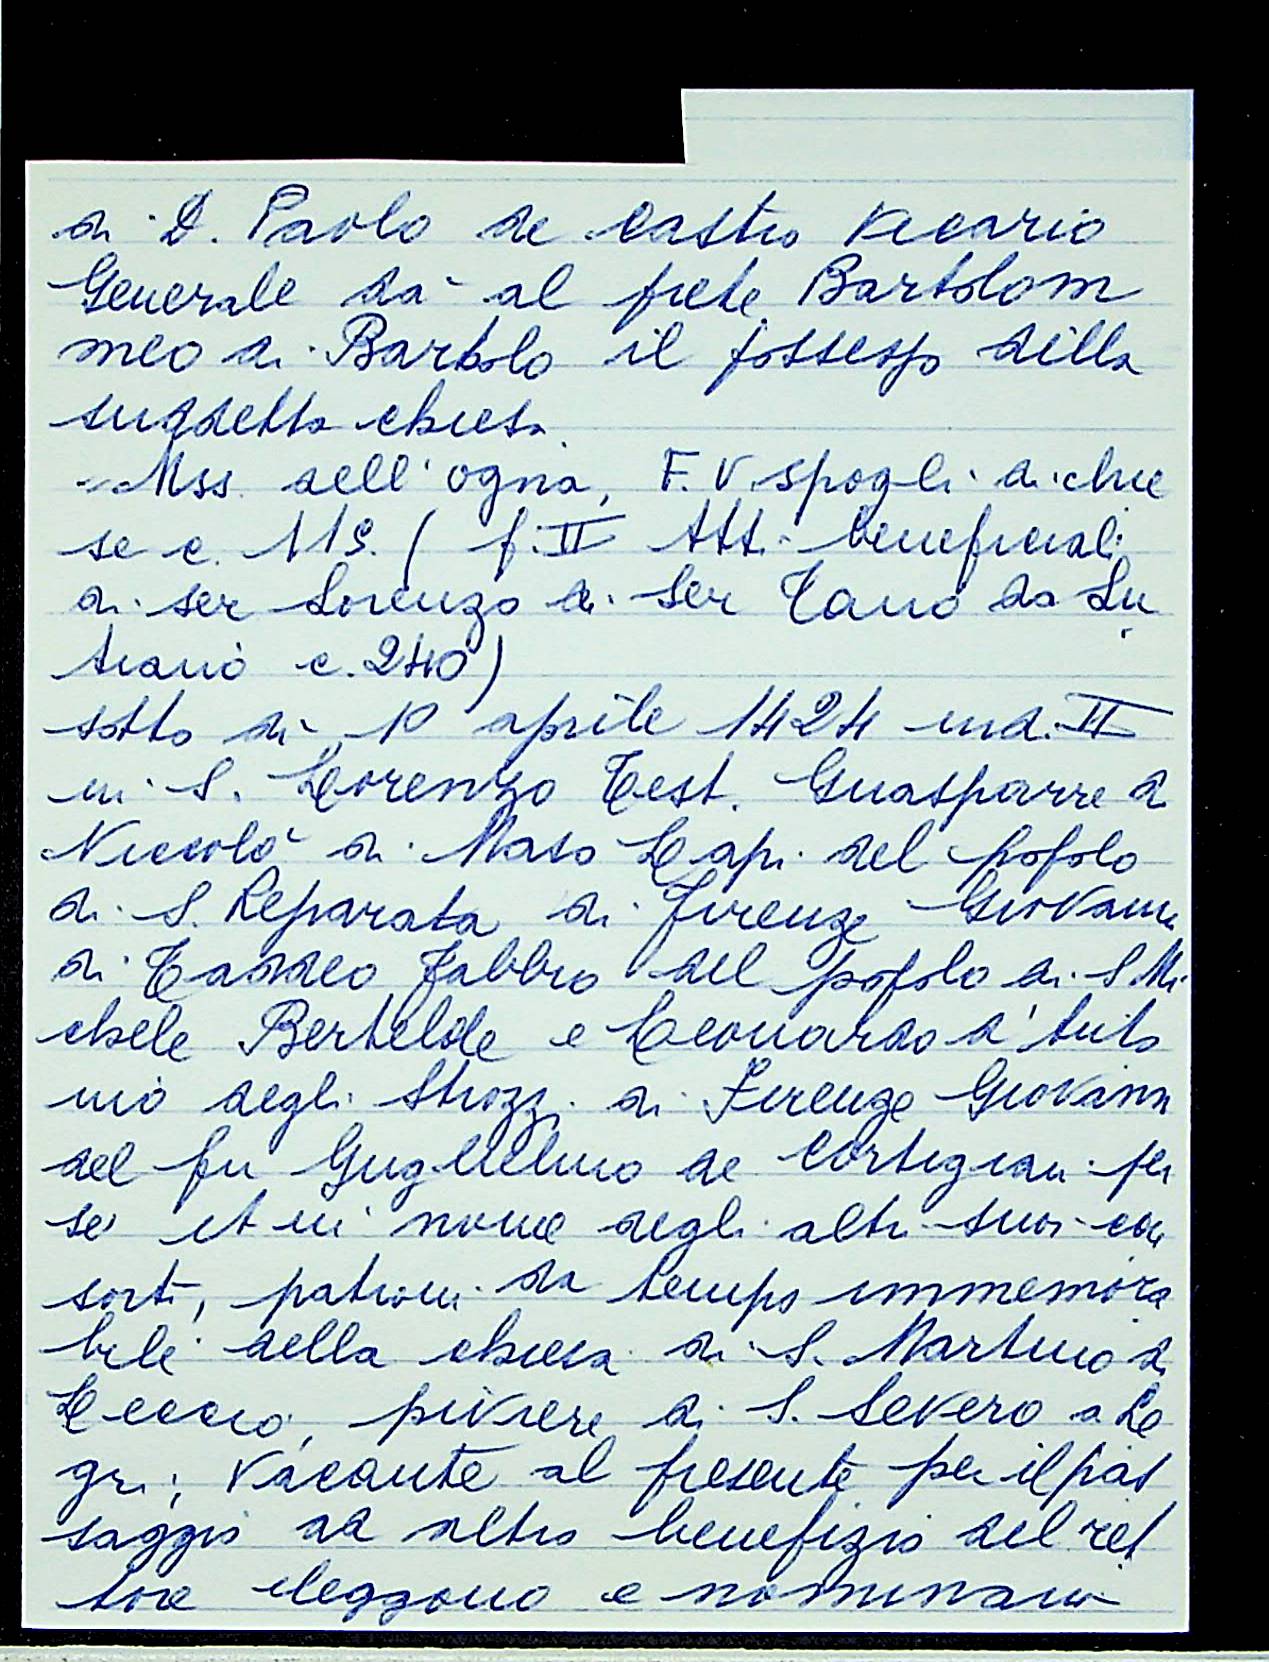 di D. Paolo de Castro Vicario
Generale da' al prete Bartolom
meo di Bartolo il possesso della
suddetta chiesa.
Mss. dell'ogna, F. V. spogli di chie
se c. 119. ( f. II Atti beneficiali
di ser Lorenzo di Ser Tano da Lu
triano c. 240)
sotto di 10 aprile 1424 ind. II
in S. Lorenzo Test. Guasparre d
Niccolò di Maso Lapi del popolo
di S. Reparata di Firenze Giovanni
di Taddeo Fabbro del popolo di S Mi
chele Bertelde e Leonardo d'Anto
nio degli Strozzi di Firenze Giovann
del fu Guglielmo de Cortigiani per
se et in nome degli altri suoi con
sorti, patroni da tempo immemora
bile della chiesa di S. Martino di
Leccio, piviere di S. Severo a Le
gri, vacante al presente per il pas
saggio ad altro benefizio del ret
tore eleggono e nominano